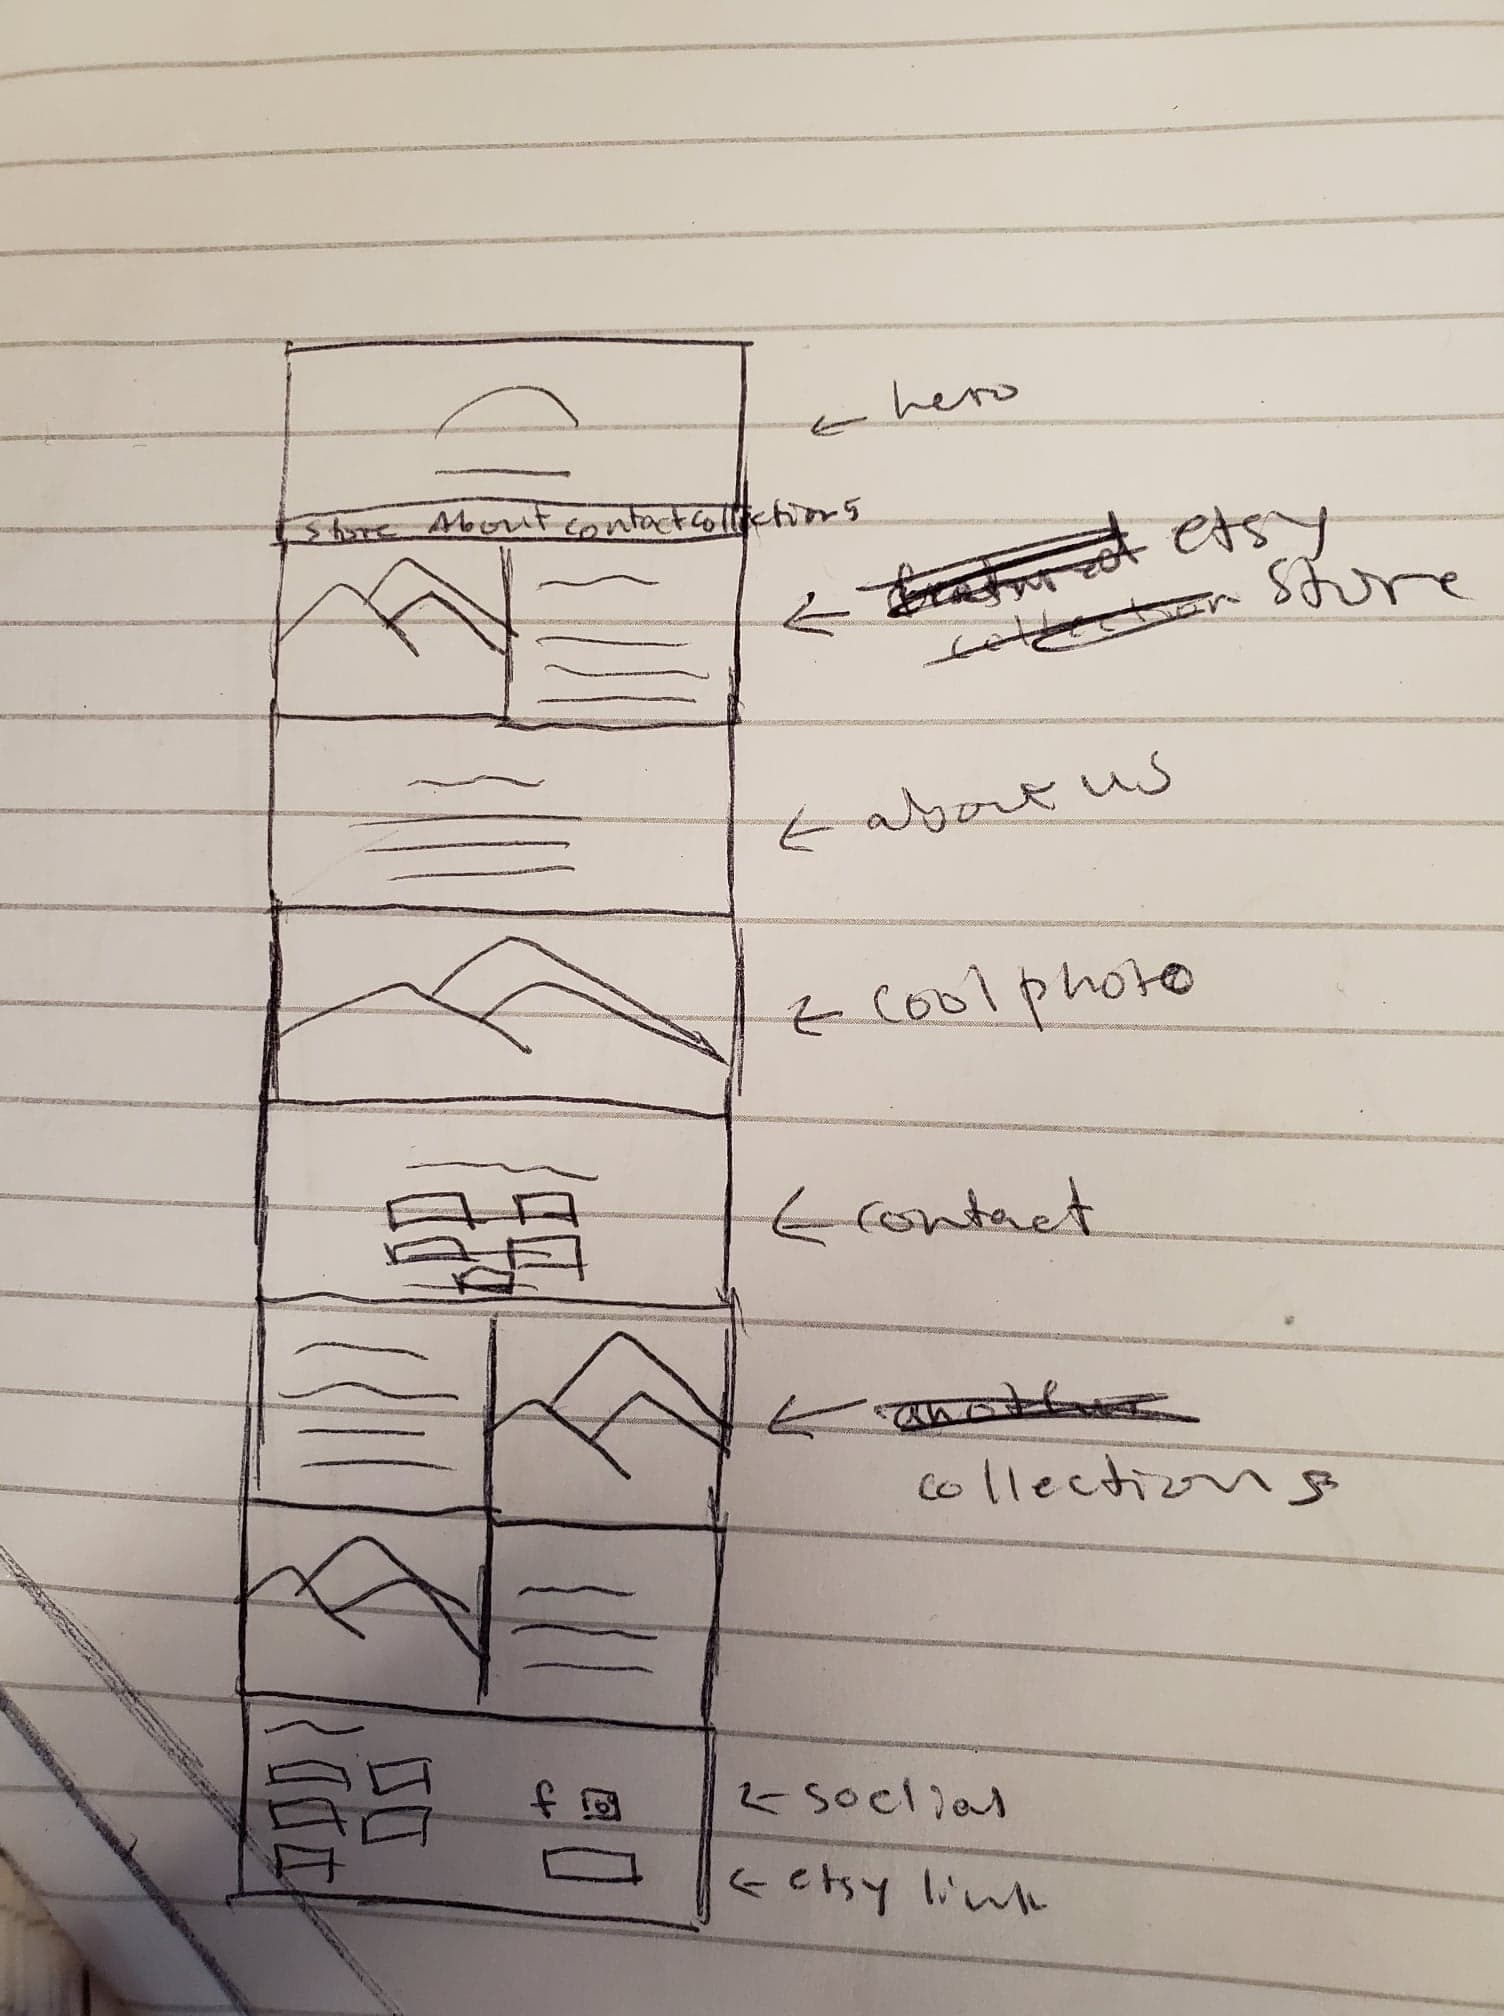 hero
Store About contact collections
featured etsy
collection store
about us
cool photo
contact
another
collections
f
social
etsy link